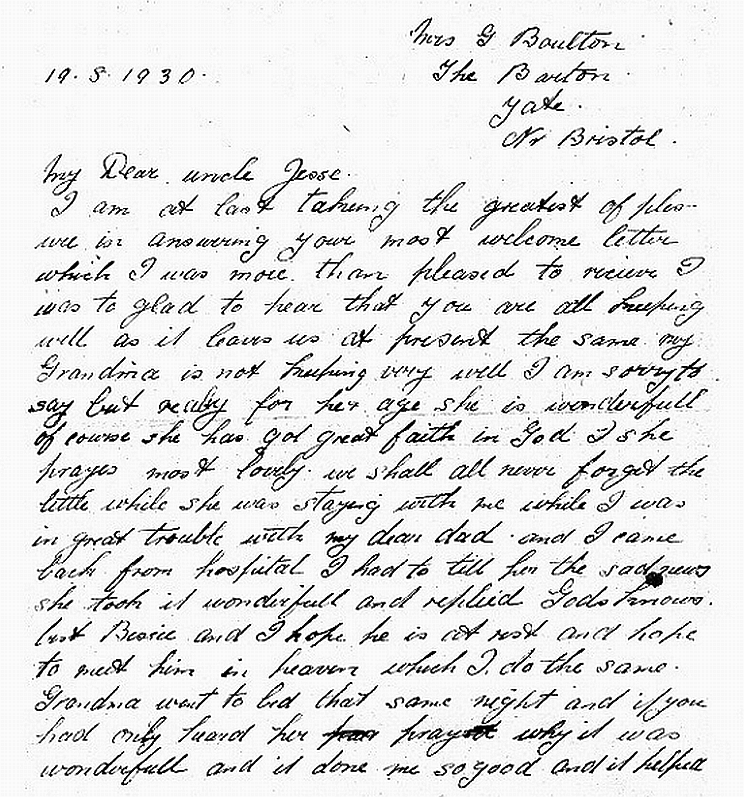 Mrs G Boulton
19.8.1930.
The Barton
Yate.
Nr Bristol.
My Dear uncle Jesse.
I am at last takeing the greatist of ples-
ure in answering your most welcome letter
which I was more than pleased to reciever I
was to glad to hear that you are all keeping
well as it leaves us at present the same my
Grandma is not keeping very well I am sorry to
say but really for her age she is wonderfull
of course she has got great faith in God & she
prayes most lovely. we shall all never forget the
little while she was staying with me while I was
in great trouble with my dear dad. and I came
back from hospital I had to tell her the sad news
she took it wonderfull and replied Gods knows.
best Bessie and I hope he is at rest and hope
to meet him in heaven which I do the same.
Grandma went to bed that same night and if you
had only heard her pray why it was
wonderfull and it done me so good and it helped